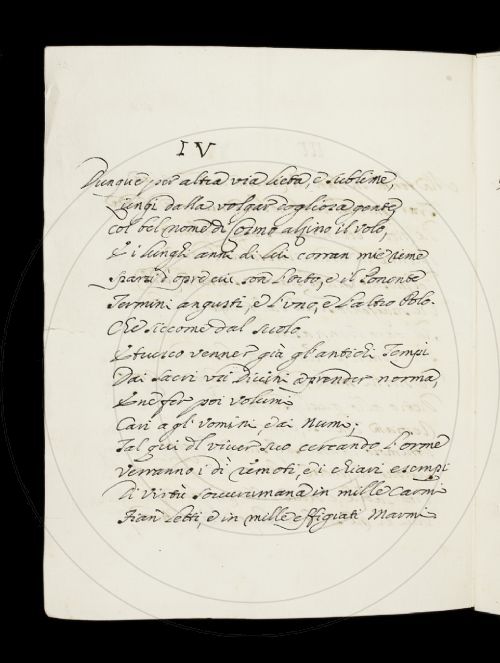 IV
Dunque per altra via lieta, e sublime,
Lungi dalla volgar dogliosa gente,
col bel nome di Cosmo alzino il volo,
E i lunghi anni di lui corran mie rime
sparsi d'opre cui son l'orto, e il Ponente
Termini angusti, e l'uno, e l'altro Polo.
Che siccome dal suolo
Etrusco venner già gl'antichi Tempi
Dai sacri Divini a prender norma,
E ne fer poi volumi
Cari a gl'uomini, e ai Numi;
Tal qui del viver suo cercando l'orme
Verranno i dì remoti, e i chiari esempi
Di virtù sovrumana in mille Carmi
Fian letti, e in mille effigiati Marmi